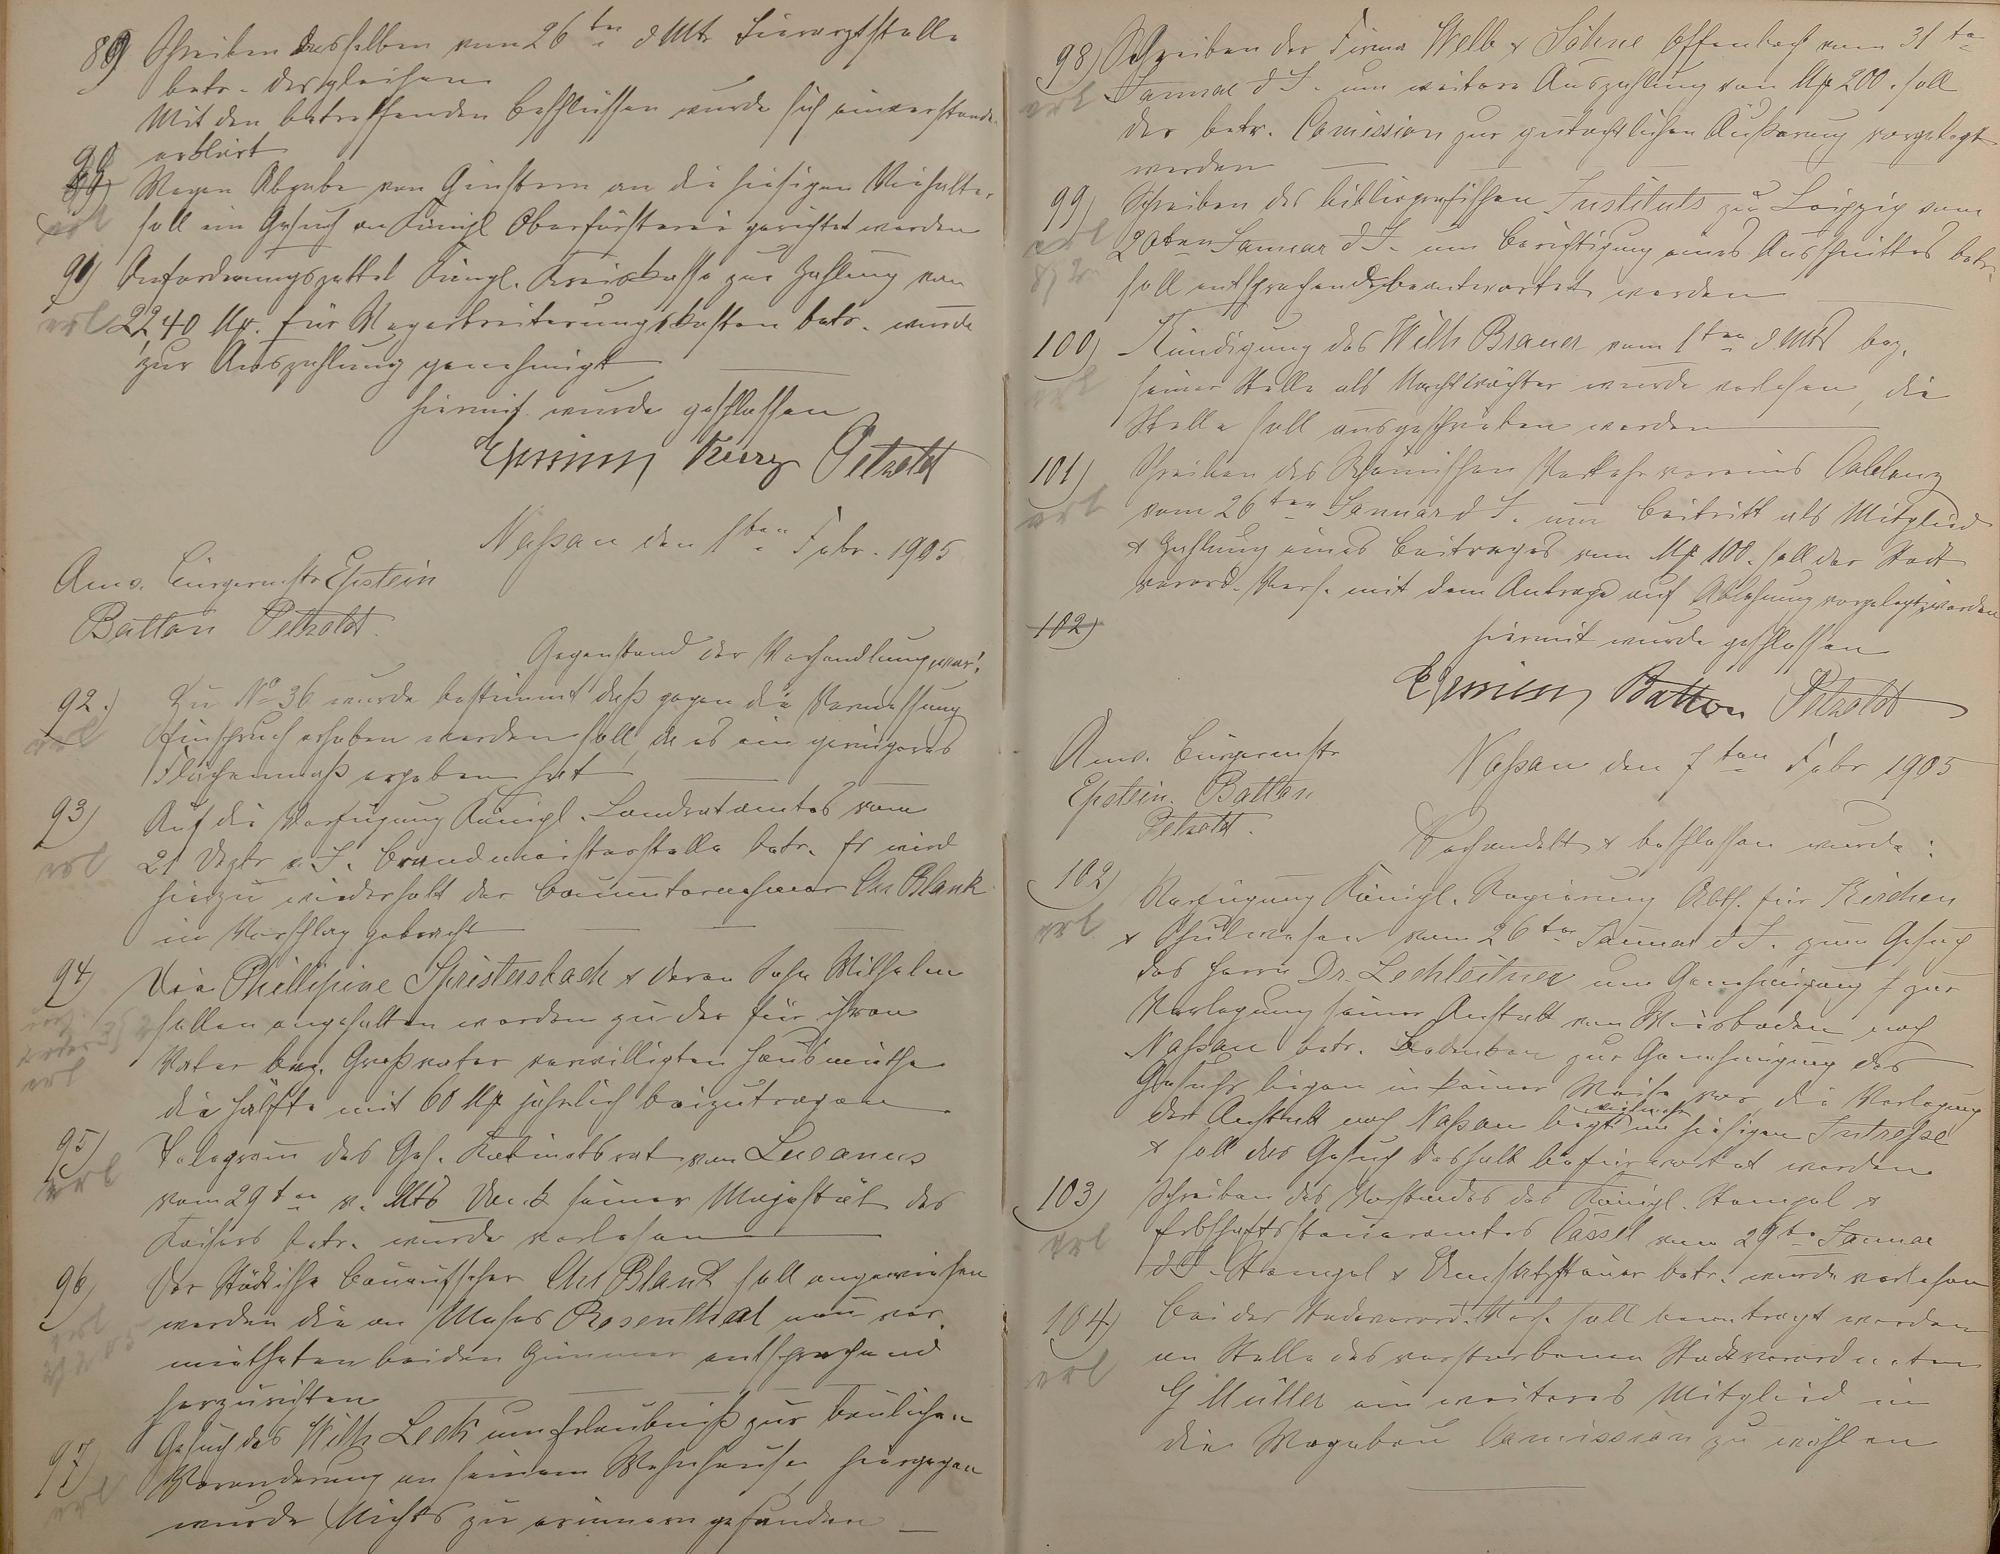 89) Schreiben desselben vom 26ten d Mts Tierarztstelle
betr. desgleichen
Mit den betreffenden Beschlüssen wurde sich einverstanden
erklärt
90) Wegen Abgabe von Ginstern an die hiesigen Viehhalter
erl
soll ein Gesuch an Königl Oberförsterei gerichtet werden
91) Anforderungszettel Königl. Kreiskasse zur Zahlung von
erl
22,40 Mk. für Wegerbreiterungskosten betr. wurde
zur Auszahlung genehmigt
hiermit wurde geschlossen
Kurz Petzoldt
Naßau den 1ten Febr. 1905
Anw. Bürgermstr Epstein
Batton Petzoldt.
Gegenstand der Verhandlung war:
92.) Zu No 36 wurde bestimmt daß gegen die Vermessung
erl
Einspruch erhoben werden soll, da es ein geringeres
Flächenmaß ergeben hat
93) Auf die Verfügung Königl. Landratamtes vom
erl
21 Dezbr v. J. Brandmeisterstelle betr. Es wird
hierzu wiederholt der Bauunternehmer Chr Blank
in Vorschlag gebracht
94) Die Phillipine Spriestersbach & deren Sohn Wilhelm
sollen angehalten werden zu der für ihren
erl
Vater bez. Großvater verwilligten Hausmiethe
die Hälfte mit 60 Mk jährlich beizutragen
95) Telegramm des Geh. Kabinetsrat von Lucanus
erl
vom 29ten v. Mts Dank seiner Majestät des
Kaisers betr. wurde verlesen
96) Der Städtische Bauaufseher Chr Blank soll angewiesen
werden die an Moses Rosenthal neu ver.
mietheten beiden Zimmer entsprechend
herzurichten
97) Gesuch des Wilh Leck um Erlaubniß zur baulichen
erl
Veränderung an seinem Wohnhause, hiergegen
wurde Nichts zu erinnern gefunden
98) Schreiben der Firma Welb & Söhne Offenbach vom 31te
erl
Januar d J. um weitere Auszahlung von Mk 200. soll
der betr. Comission zur gutachtlichen Äußerung vorgelegt
werden
99) Schreiben des bibliografischen Instituts zu Leipzig vom
erl
20ten Januar d J. um Berichtigung eines Ausschnittes betr.
soll entsprechend beantwortet werden
100) Kündigung des Wilh Brauer vom 1ten d. Mts bez.
erl
seiner Stelle als Nachtwächter wurde verlesen, die
Stelle soll ausgeschrieben werden
101) Schreiben des Rheinischen Verkehrsvereins Coblenz
erl
vom 26ten Januar d J. um Beitritt als Mitglied
& Zahlung eines Beitrages von Mk 100. soll der Stadt
verord. Vers. mit dem Antrage auf Ablehnung vorgelegt werden
102)
hiermit wurde geschlossen
Batton Petzoldt
Anw. Bürgermstr
Epstein. Batton
Petzoldt.
Naßau den 7ten Febr 1905
Verhandelt & beschlossen wurde:
102) Verfügung Königl. Regierung Abth. für Kirchen
erl
& Schulwesen vom 26ten Januar d J. zum Gesuch
des Herrn Dr. Lechleitner um Genehmigung zur
Verlegung seiner Anstalt von Wiesbaden nach
Naßau betr. Bedenken zur Genehmigung des
Gesuchs liegen in keiner Weise vor, die Verlegung
der Anstalt nach Naßau liegt vielmehr im hiesigen Intreße
& soll das Gesuch deshalb befürwortet werden
103) Schreiben des Vorstandes des Königl. Stempel &
erl
Erbschaftssteueramtes Cassel vom 29te Januar
d J. Stempel & Umsatzsteuer betr. wurde verlesen
104) Bei der Stadtverord. Vers. soll beantragt werden
erl
an Stelle des verstorbenen Stadtverordneten
G Müller ein weiteres Mitglied in
die Wegebau Comission zu wählen